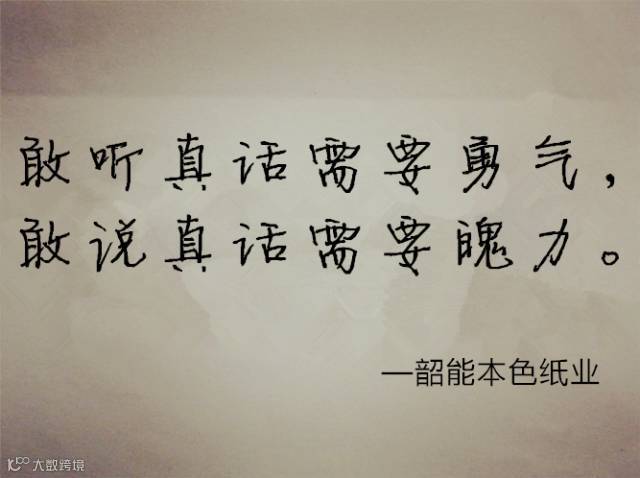 敢听真话需要勇气，
敢说真话需要魄力。
—韶能本色纸业
大数跨境